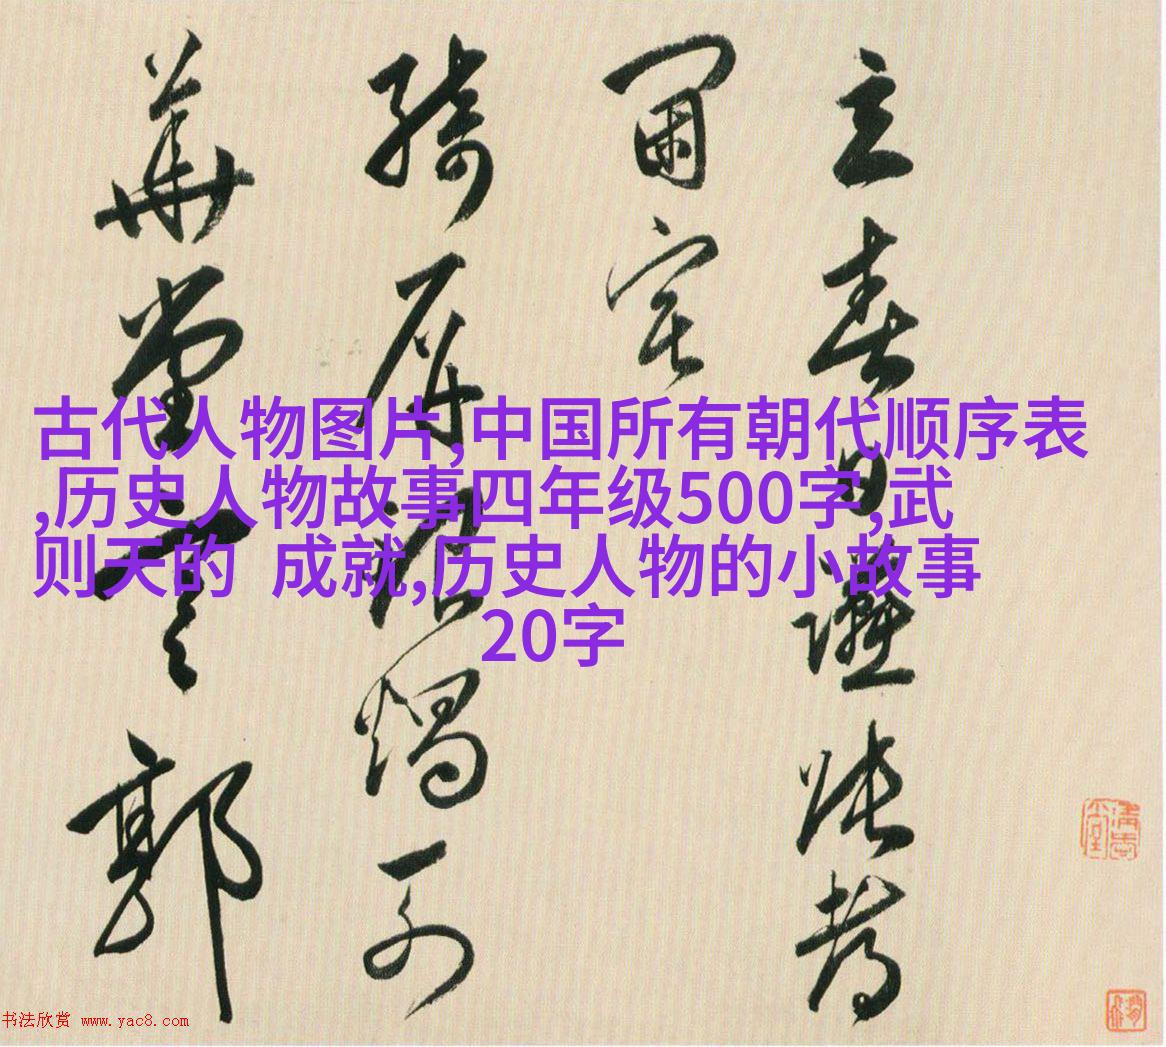 古代人物图片,中国所有朝代顺序表
,历史人物故事四年级500字,武
则天的 成就,历史人物的小故事
20字
立春日讌張
閫宅
綺 燭
華堂 郭
书法欣赏 www.yac8.com